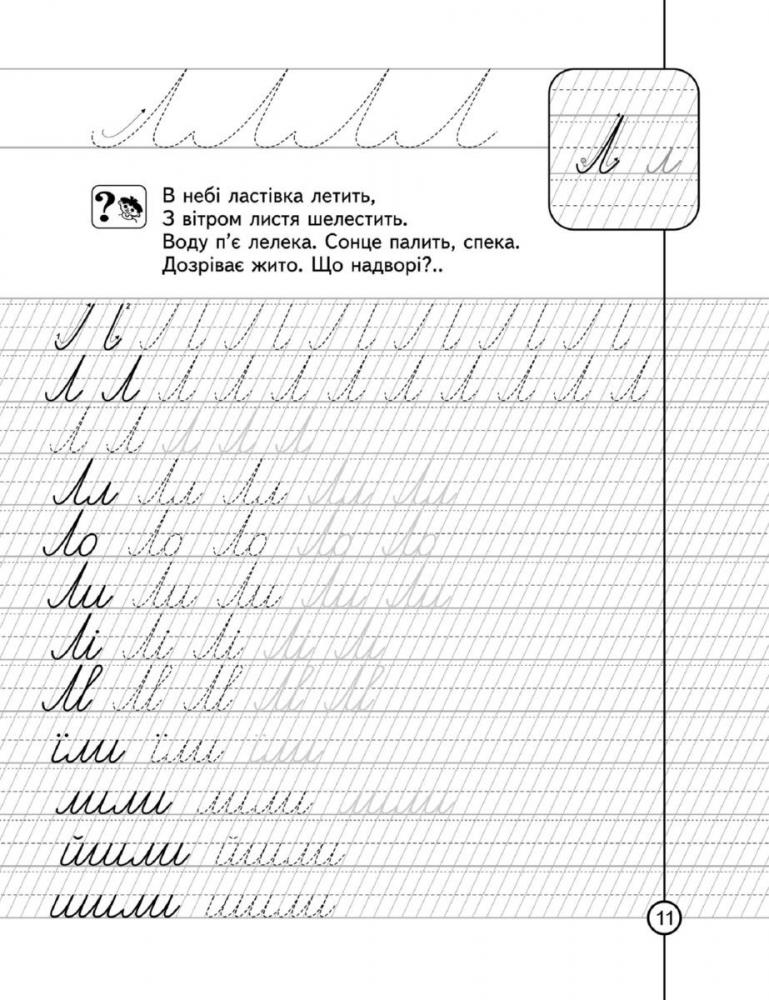 Л Л Л Л
Л л
?
В небі ластівка летить,
З вітром листя шелестить.
Воду п'є лелека. Сонце палить, спека.
Дозріває жито. Що надворі?..
1 2 Л Л Л Л Л Л Л
Л Л Л Л Л Л Л Л Л Л Л
Л Л Л Л Л
Лл Лл Лл Лл Лл
Ло Ло Ло Ло Ло
Ли Ли Ли Ли Ли
Лі Лі Лі Лі Лі
Лв Лв Лв Лв Лв
їли їли їли
лили лили лили
йшли йшли
шили шили
11